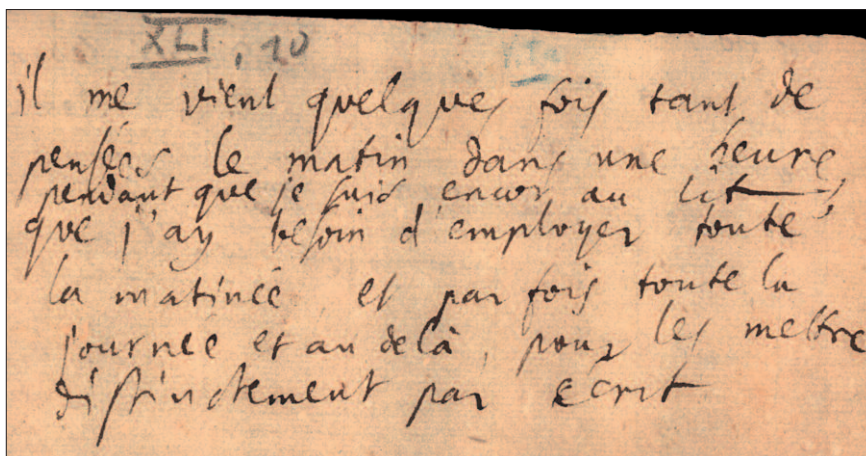 XLI, 10
il me vient quelques fois tant de
pensées le matin dans une heure,
pendant que je suis encor au lit,
que j'ay besoin d'employer toute
la matinée et par fois toute la
journée et au delà, pour les mettre
distinctement par écrit